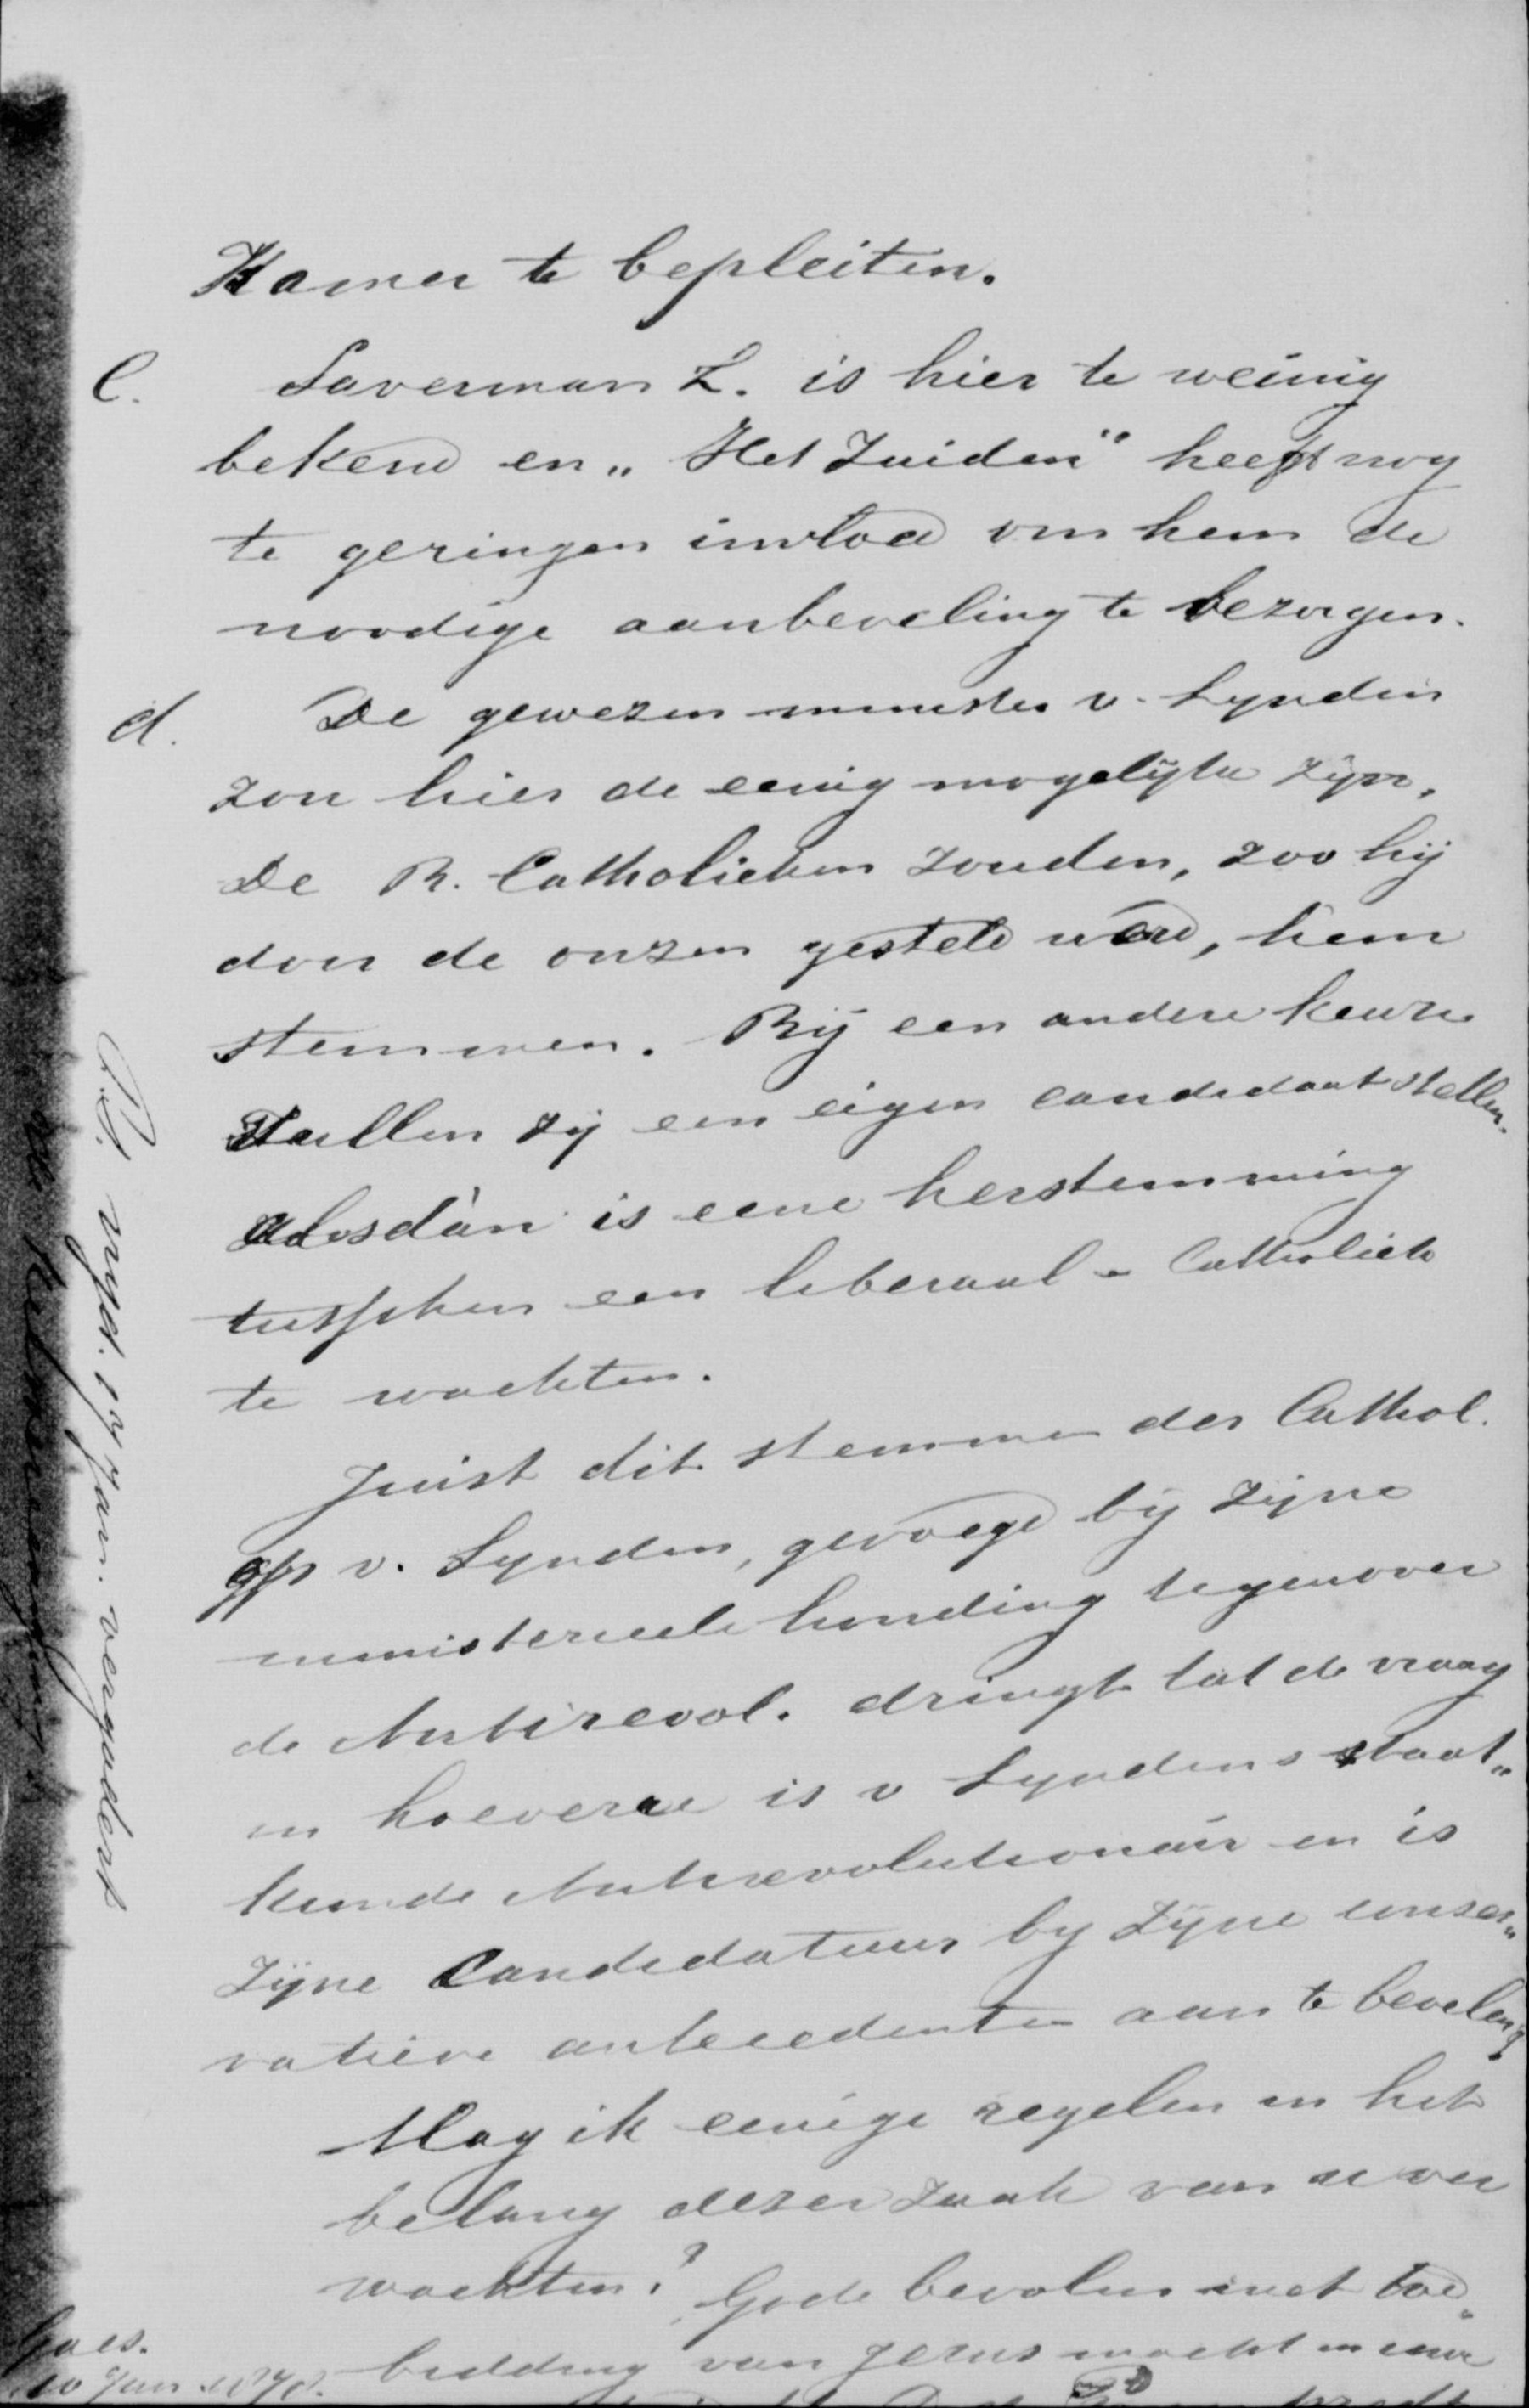 Kamer te bepleiten.
c. Saverman L. is hier te weinig
bekend en „Het Zuiden" heeft nog
te geringen invloed om hem de
noodige aanbeveling te bezorgen.
d. De gewezen minister v. Lynden
zou hier de eenig mogelijke zijn.
De R. Catholieken zouden, zoo hij
door de onzen gesteld werd, hem
stemmen. Bij een andere keuze
zullen zij een eigen candidaat stellen.
Alsdàn is eene herstemming
tusschen een liberaal - Catholiek
te wachten.
Juist dit stemmen der Cathol.
op v. Lynden, gevoegd bij zijne
ministerieele houding tegenover
de Antirevol. dringt tot de vraag
in hoeverre is v Lyndens staat„
kunde Antirevolutionair en is
zijne Candidatuur bij zijne conser„
vatieve antecedenten aan te bevelen?
Mag ik eenige regelen in het
belang dezer zaak van u ver
wachten? Gode bevolen met toe„
bidding van Jezus macht in uwe
Goes.
10 Jan. 1878.
P.S. vrijd. 17 Jan. vergadert
de Kiesvereeniging